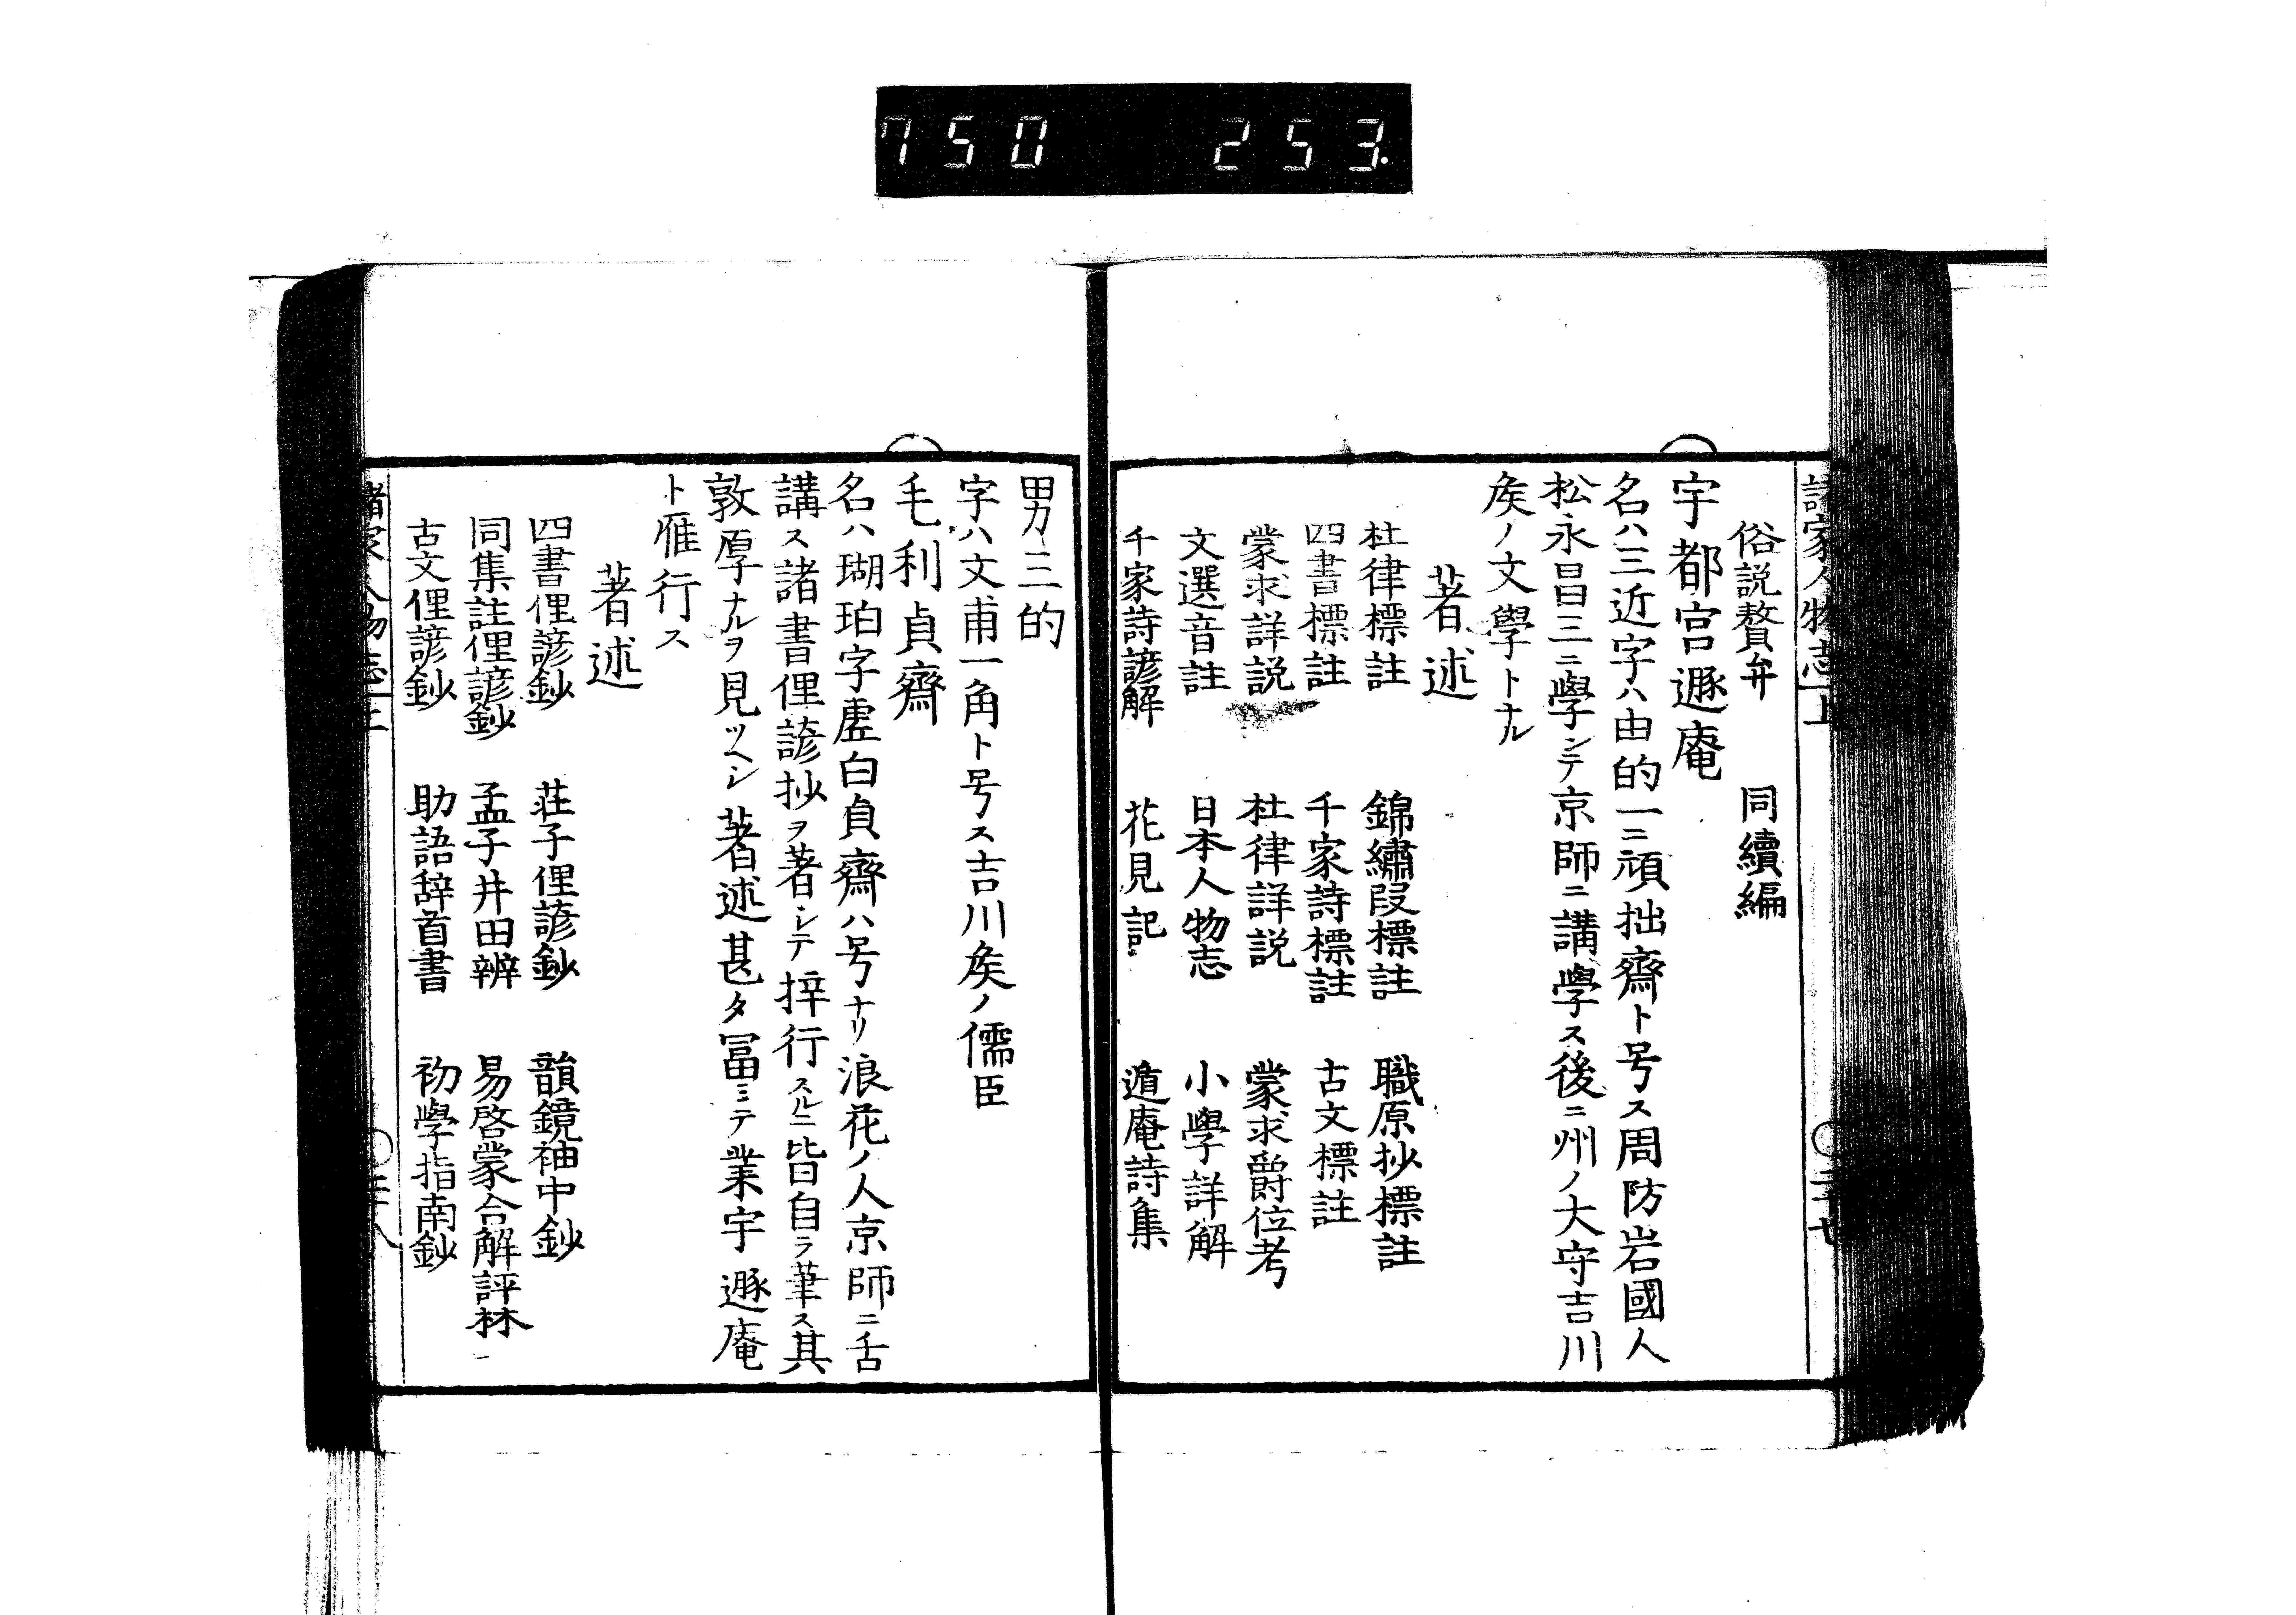 750 253.
諸家人物志 上
俗説贅弁 同續編
宇都宮遯庵
名ハ三近字ハ由的一ニ頑拙齋ト号ス周防岩國人
松永昌三ニ學ンテ京師ニ講學ス後ニ州ノ大守吉川
矦ノ文學トナル
著述
杜律標註 錦繡段標註 職原抄標註
四書標註 千家詩標註 古文標註
蒙求詳説 杜律詳説 蒙求爵位考
文選音註 日本人物志 小學詳解
千家詩諺解 花見記 遁庵詩集
男三的
字ハ文甫一角ト号ス吉川矦ノ儒臣
毛利貞齋
名ハ瑚珀字虚白貞齋ハ号ナリ浪花ノ人京師ニ舌
講ス諸書俚諺抄ヲ著シテ梓行スルニ皆自ラ筆ス其
敦厚ナルヲ見ツヘシ著述甚タ冨ミテ業宇遯庵
ト雁行ス
著述
四書俚諺鈔 荘子俚諺鈔 韻鏡袖中鈔
同集註俚諺鈔 孟子井田辨 易啓蒙合解評林
古文俚諺鈔 助語辞首書 初學指南鈔